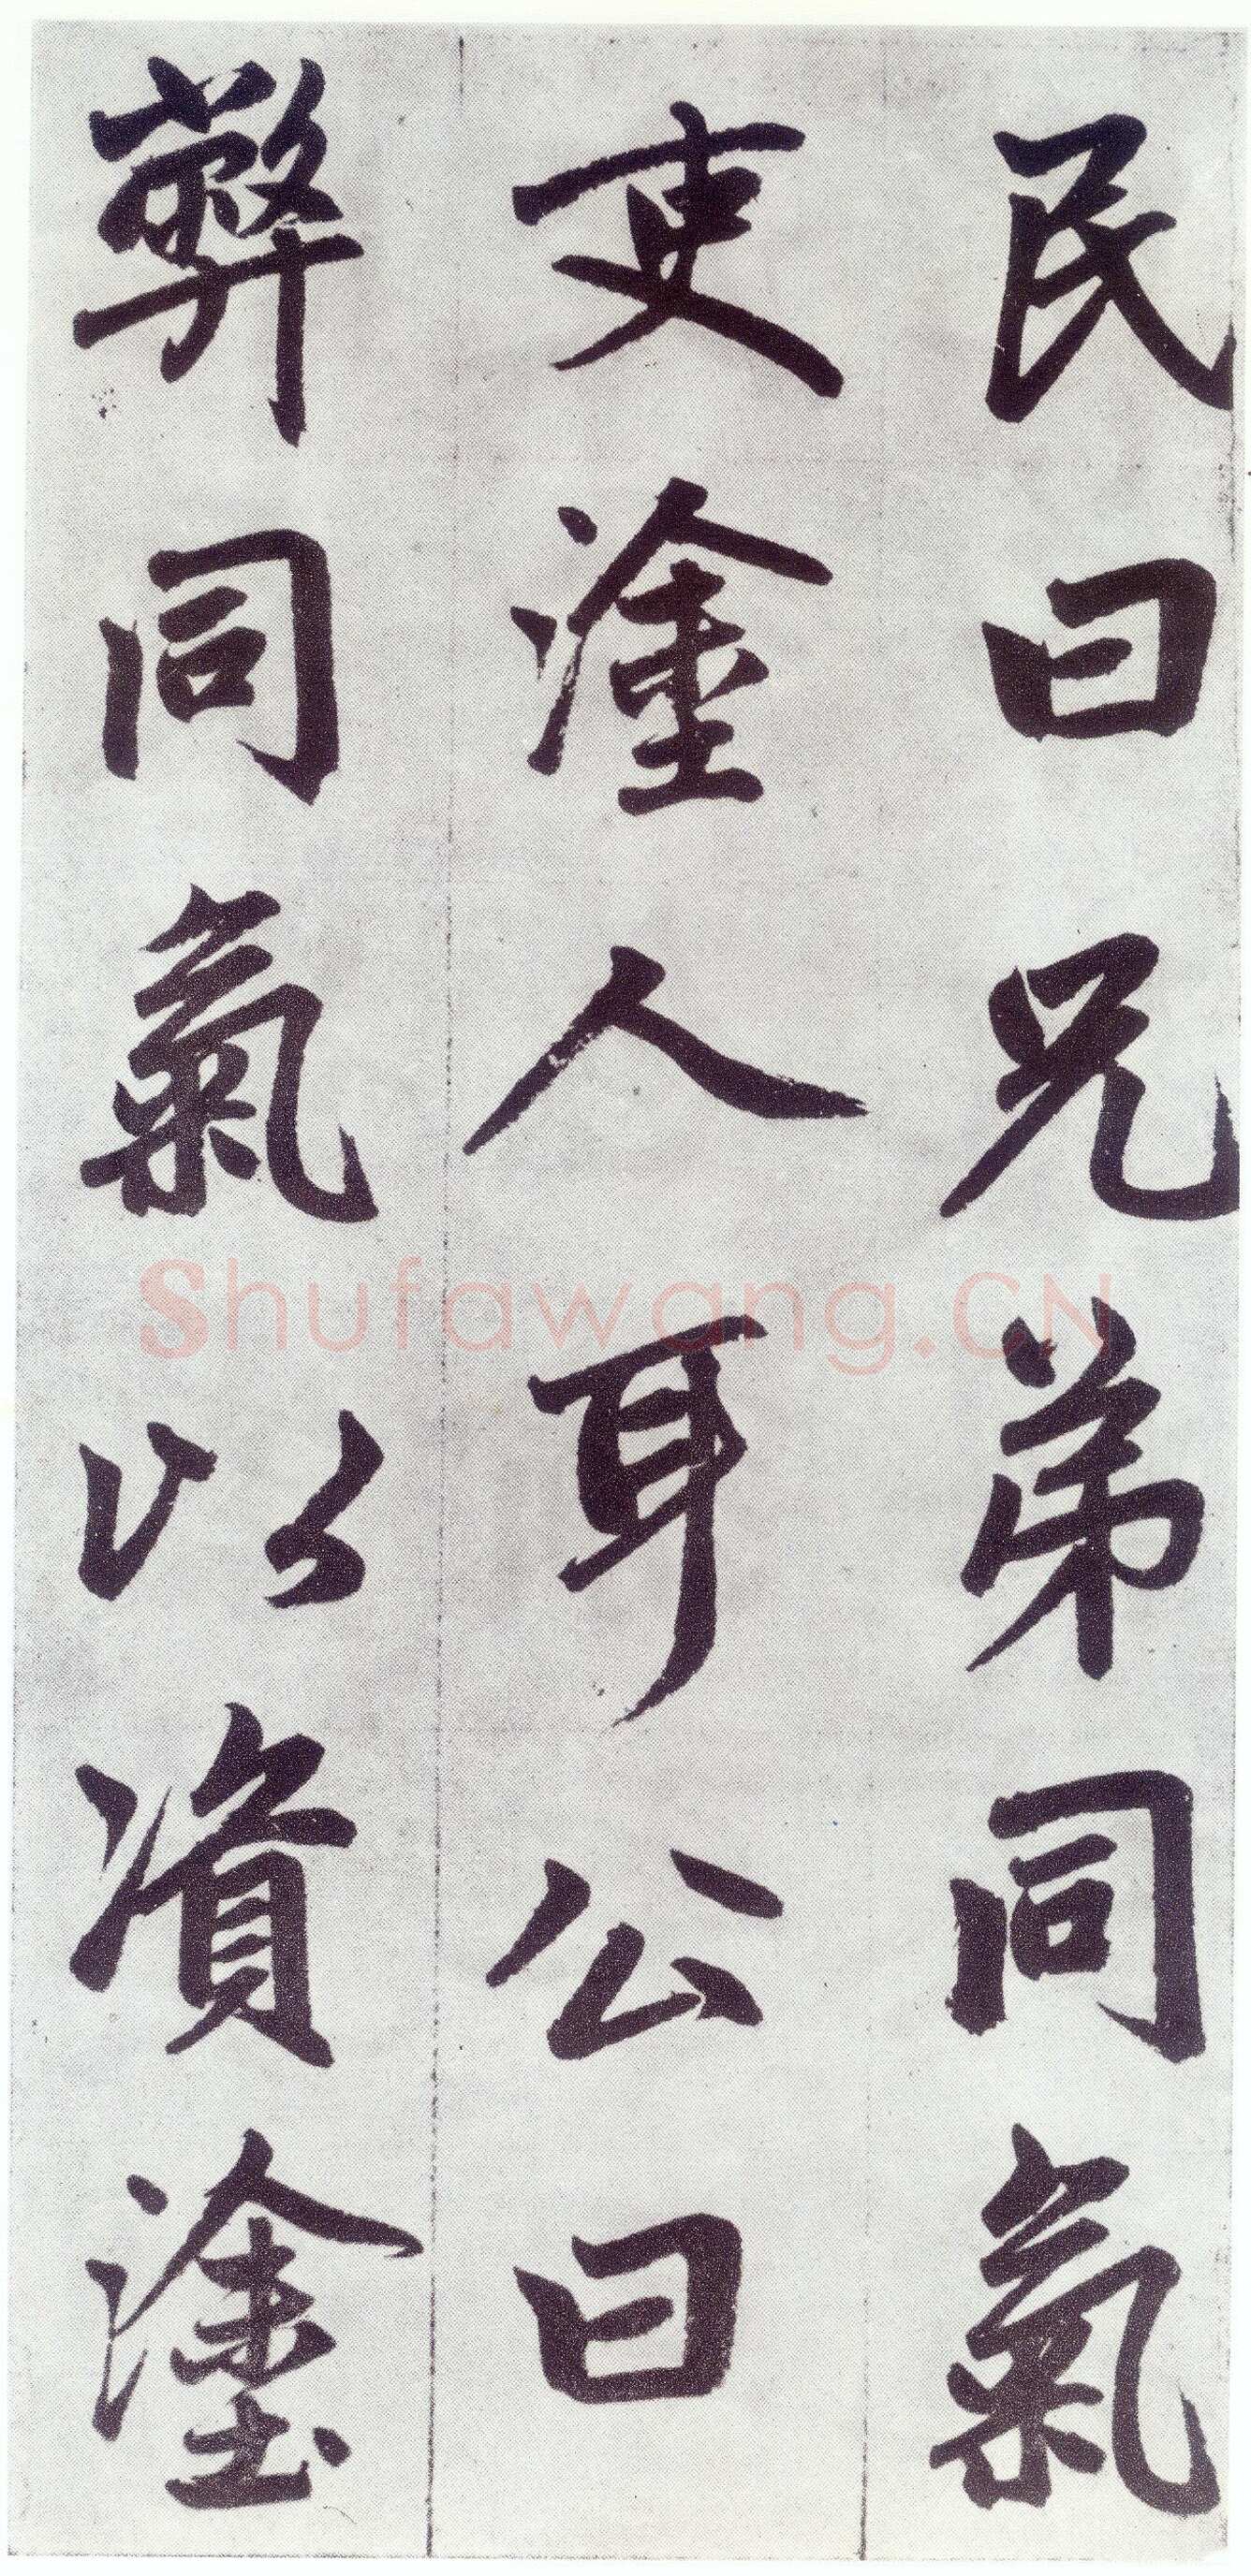 民曰兄弟同氣
吏塗人耳公曰
弊同氣以資塗
Shufawang.CN